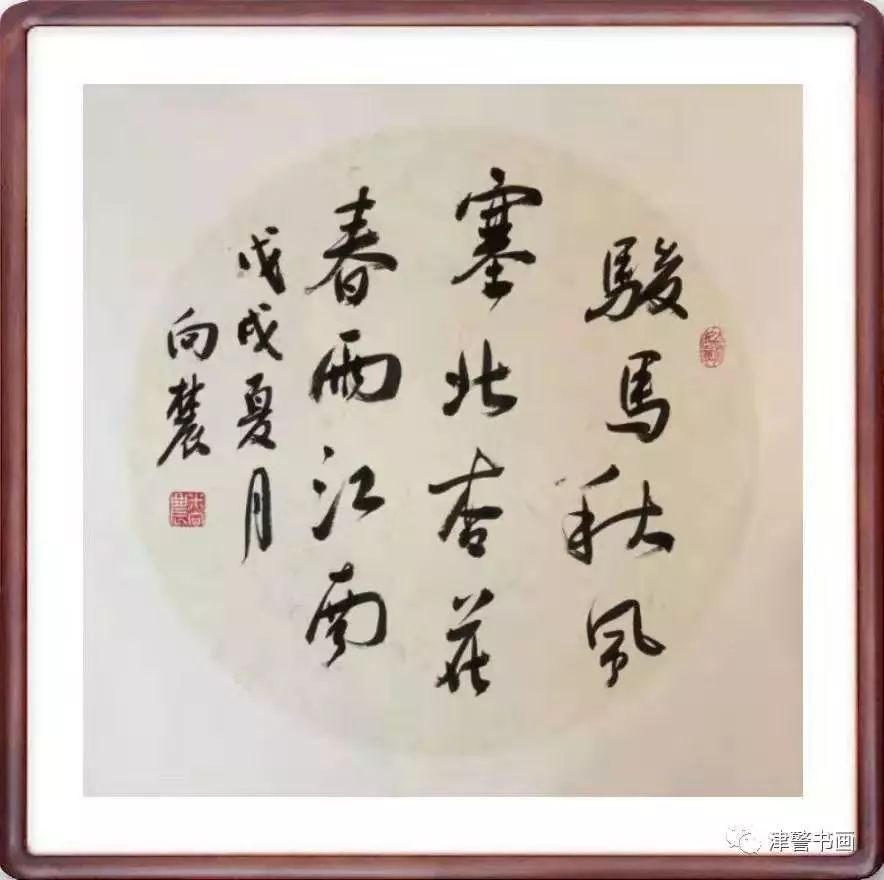 駿馬秋風
塞北杏花
春雨江南
戊戌夏月
向農
津警书画